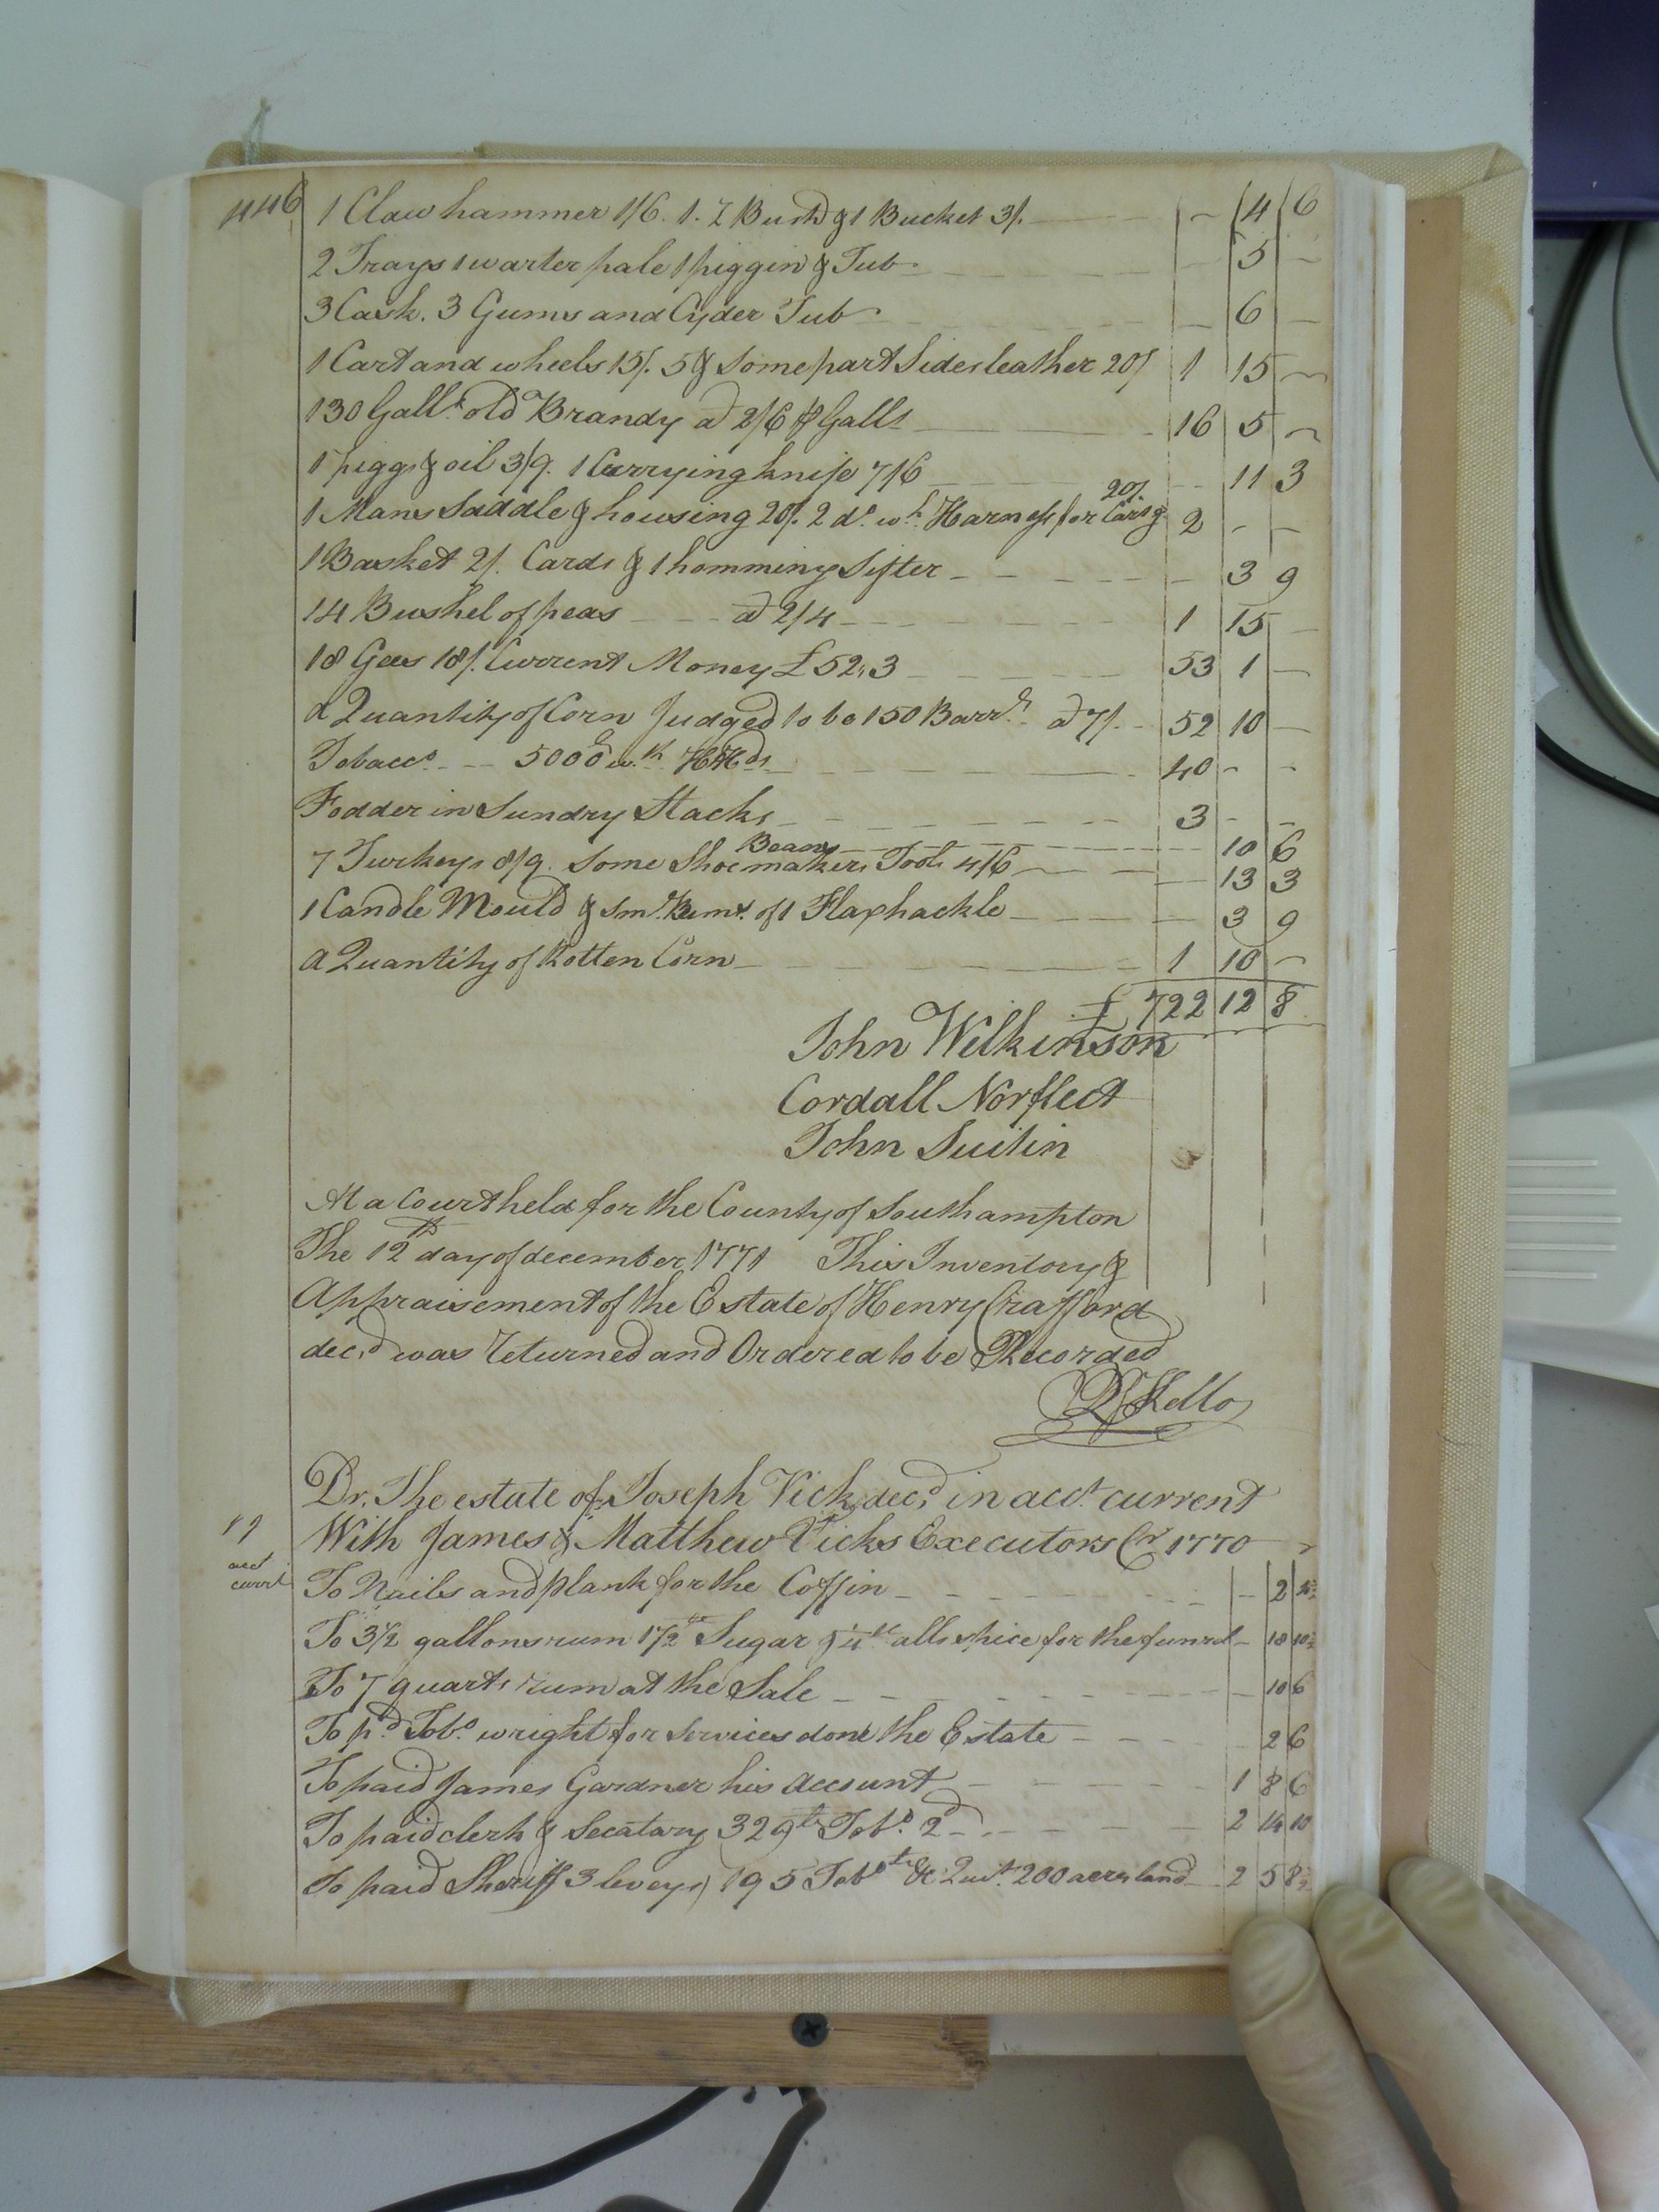 446
1 Claw hammer 1/6. 1. Bush & 1 Bucket 3/. - 4 6
2 Trays 1 warter pale 1 piggin & Tub - 5 -
3 Cask. 3 Gums and Cyder Tub - 6 -
1 Cart and wheels 15/. 5 & some part Sides leather 20/ 1 15 -
130 Galls. old Brandy a 2/6 ⅌ Galls 16 5 -
1 pigg & oil 3/9. 1 Currying knife 7/6 - 11 3
1 Mans Saddle & housing 20/. 2 do. wh. Harness for Carig 20/. 2 - -
1 Basket 2/. Cards & 1 hominy Sifter - 3 9
14 Bushel of peas a 2/4 1 15 -
18 Gees 18/. Current Money £52,,3 53 1 -
a Quantity of Corn Judged to be 150 Barrs. a 7/. 52 10 -
Tobacco 5000 wth HHds 40 - -
Fodder in Sundry Stacks 3 - -
Beans - 10 6
7 Turkeys 8/9. Some Shoemakers Tools 4/6 - 13 3
1 Candle Mould & Smd. of 1 Flaxhackle - 3 9
a Quantity of Rotten Corn 1 10 -
£ 722 12 8
John Wilkinson
Cordall Norfleet
John Suilin
At a Court held for the County of Southampton
The 12th day of december 1771 This Inventory &
Appraisement of the Estate of Henry Crafford
decd. was returned and Ordered to be Recorded
R Kello
Dr. The estate of Joseph Vick decd. in acct. current
With James & Matthew Vicks Executors Cr 1770
acct
currt
To Nails and plank for the Coffin - 2
To 3½ gallons rum 1½ Sugar & allspice for the funrel - 18 10½
To 7 quarts rum at the Sale - 10 6
To pd. Tobo. wright for Services done the Estate 2 6
To paid James Gardner his account 1 8 6
To paid clerk & Secatary 329 lb Tobo. 2d 2 14 10
To paid Sheriff 3 leveys 195 Tobo. & Quit. 200 acres land 2 5 8½